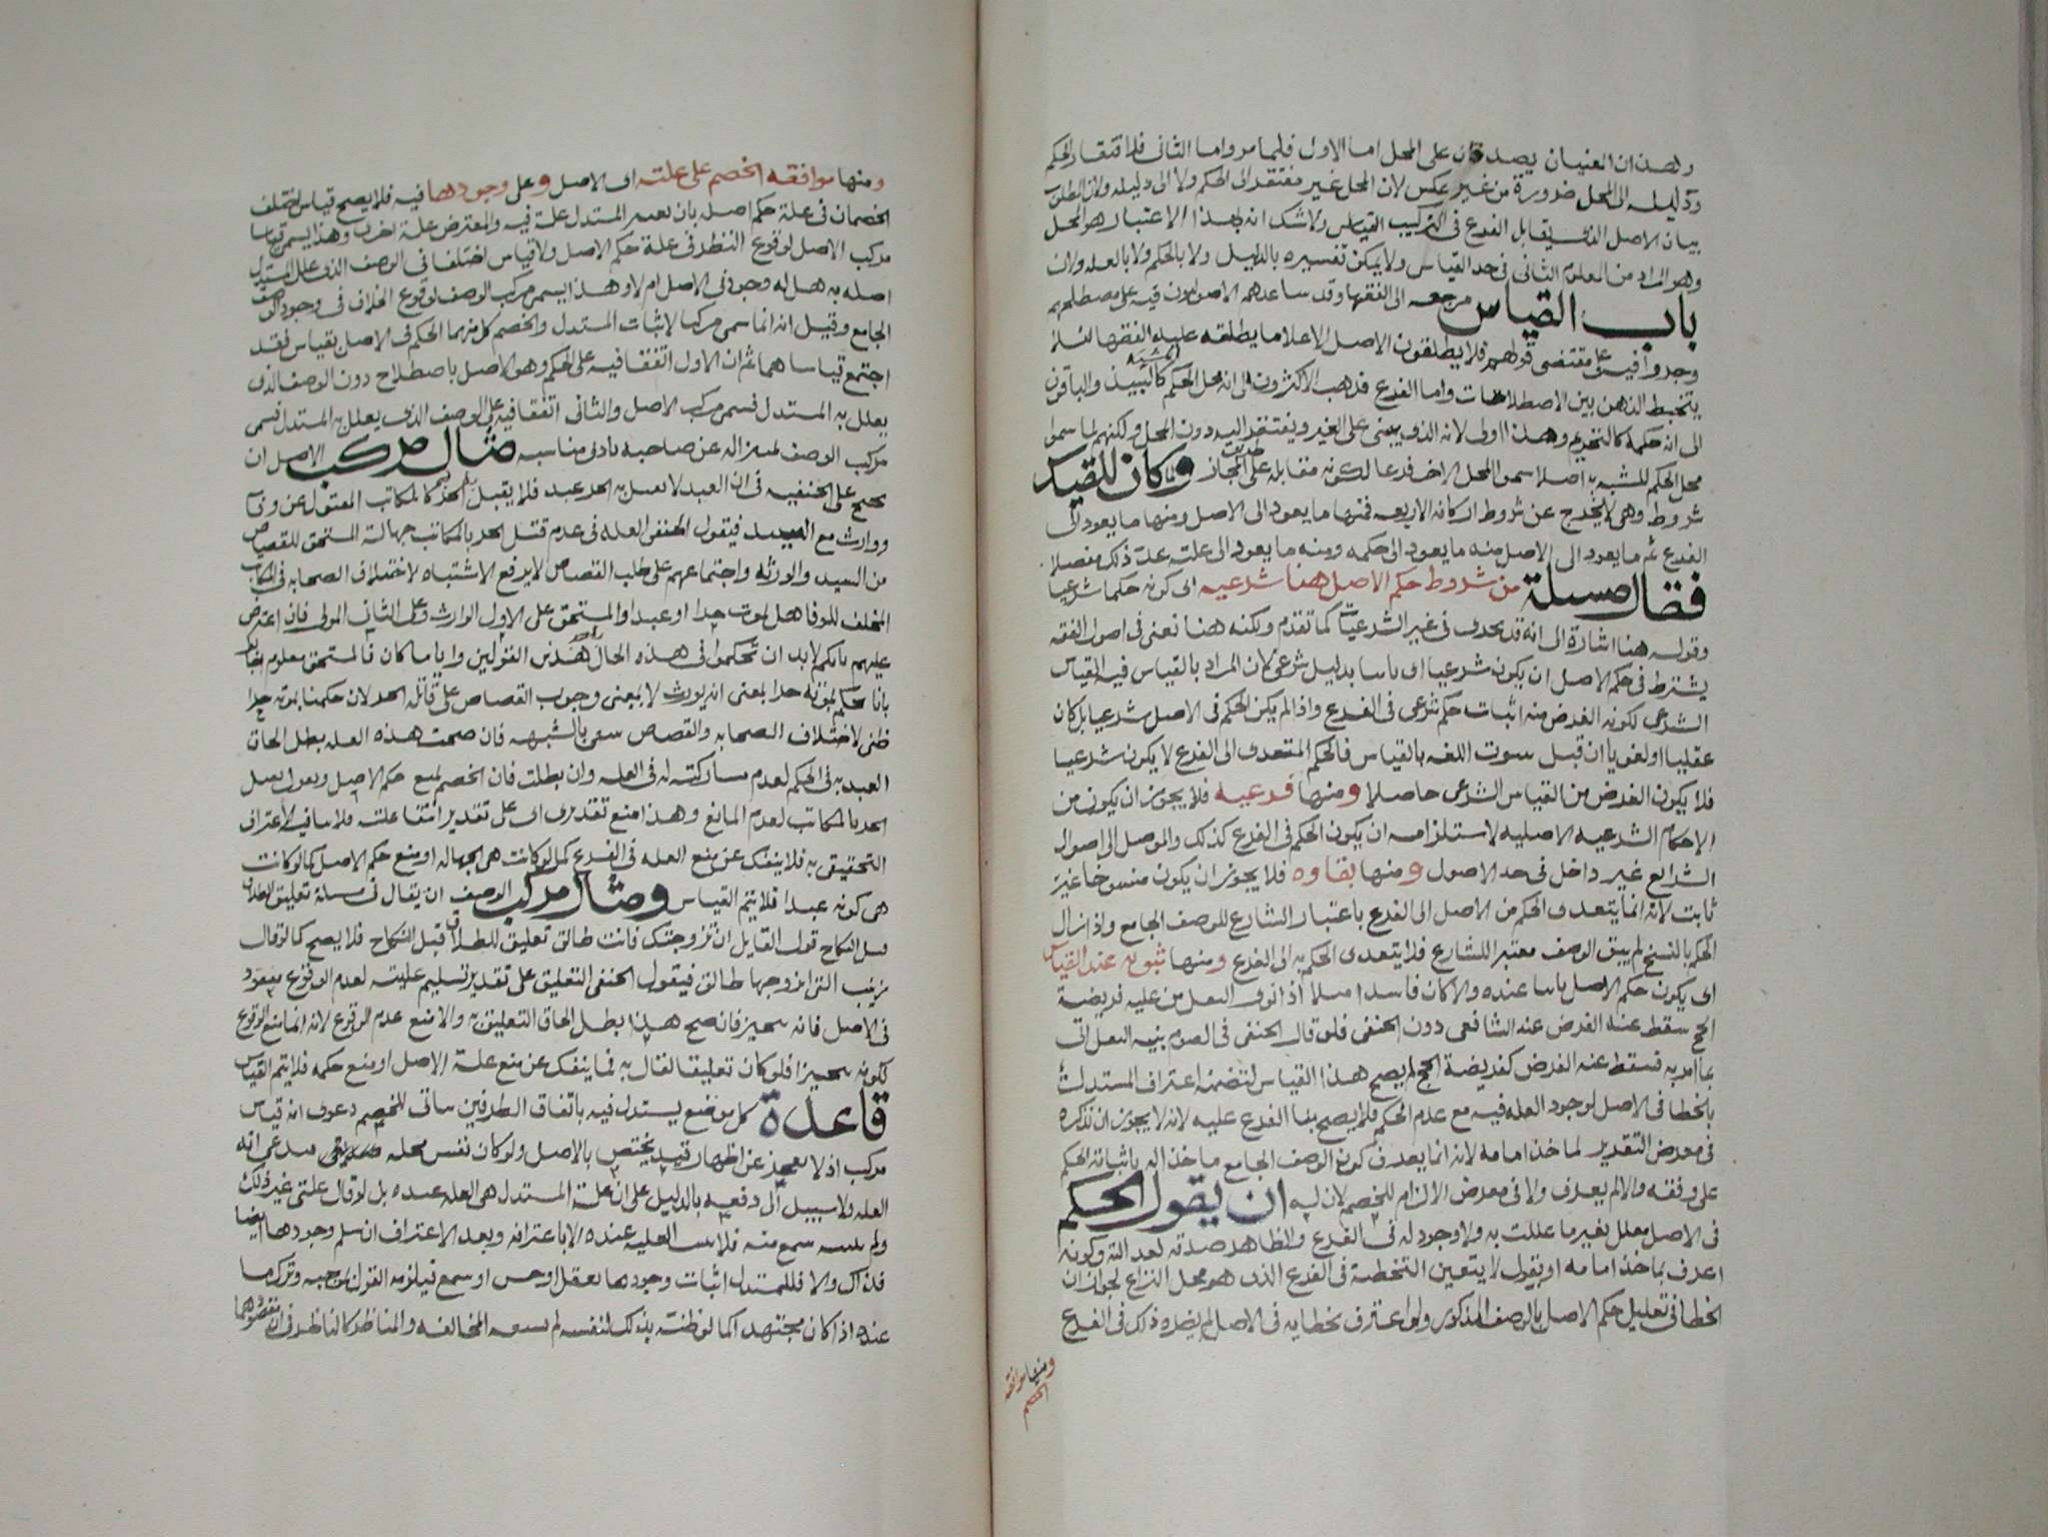 وهذان المعنيان يصدقان على المحل اما الاول فلما مر واما الثانى فلافتقار الحكم
ودليله الى المحل ضرورة من غير عكس لان المحل غير مفتقر الى الحكم ولا الى دليله ولان المطلوب
بيان الاصل الذى يقابل الفرع فى التركيب القياسى ولا شك انه بهذا الاعتبار هو المحل
وهو المراد من المعلوم الثانى فى حد القياس ولا يمكن تفسيره بالدليل ولا بالحكم ولا بالعله ولان
باب القياس مرجعه الى الفقها وقد ساعدهم الاصوليون فيه على مصطلحهم
وجروا فيه على مقتضى قولهم فلا يطلقون الاصل الا على ما يطلقه عليه الفقها لئلا
يتخبط الذهن بين الاصطلاحات واما الفرع فذهب الاكثرون الى انه محل الحكم المشبه كالنبيذ والباقون
الى انه حكمه كالتحريم وهذا اولى لانه الذى يبنى على الغير ويفتقر اليه دون المحل ولكنهم لما سموا
محل الحكم للمشبه به اصلا سموا المحل الاخر فرعا لكونه مقابله على المجاز وكان للقياس
شروط وهى لا تخرج عن شروط اركانه الاربعه فمنها ما يعود الى الاصل ومنها ما يعود الى
الفرع ثم ما يعود الى الاصل منه ما يعود الى حكمه ومنه ما يعود الى علته عدت ذكر مفصلا
فقال مسئلة من شروط حكم الاصل هنا شرعيه اى كونه حكما شرعيا
وقوله هنا اشارة الى انه قد يجرى فى غير الشرعيات كما تقدم ولكنه هنا نعنى فى اصول الفقه
يشترط فى حكم الاصل ان يكون شرعيا اى ثابتا بدليل شرعى لان المراد بالقياس فيه القياس
الشرعى لكونه الغرض منه اثبات حكم شرعى فى الفرع واذا لم يكن الحكم فى الاصل شرعيا بل كان
عقليا او لغويا ان قبل ثبوت اللغه بالقياس فالحكم المتعدى الى الفرع لا يكون شرعيا
فلا يكون الغرض من القياس الشرعى حاصلا ومنها فرعيه فلا يجوز ان يكون من
الاحكام الشرعيه الاصليه لاستلزامه ان يكون الحكم فى الفرع كذلك والموصل الى اصول
الشرايع غير داخل فى حد الاصول ومنها بقاوه فلا يجوز ان يكون منسوخا غير
ثابت لانه انما يتعدى الحكم من الاصل الى الفرع باعتبار الشارع للوصف الجامع واذا زال
الحكم بالنسخ لم يبق الوصف معتبرا للشارع فلا يتعدى الحكم به الى الفرع ومنها ثبوته عند القياس
اى يكون حكم الاصل ثابتا عنده والا كان فاسدا مثلا اذا نوى النفل من عليه فريضة
الحج سقط عنه الفرض عند الشافعى دون الحنفى فلو قال الحنفى فى الصوم بنية النفل اتى
بما امر به فسقط عنه الفرض كفريضة الحج لم يصح هذا القياس لتضمنه اعتراف المستدل
بالخطا فى الاصل لوجود العله فيه مع عدم الحكم فلا يصح بنا الفرع عليه لانه لا يجوز ان تذكره
فى معرض التقدير لماخذ امامه لانه انما يعرف كون الوصف الجامع ماخذا له باثباته الحكم
على وفقه والا لم يعرف ولا فى معرض الالزام للخصم لان له ان يقول الحكم
فى الاصل معلل بغير ما عللت به ولا وجود له فى الفرع والظاهر صدقه لعدالته وكونه
اعرف بماخذ امامه او يقول لا يتعين التخطئة فى الفرع الذى هو محل النزاع لجواز ان
الخطا فى تعليل حكم الاصل بالوصف المذكور ولو اعترف بخطايه فى الاصل لم يضره ذلك فى الفرع
ومنها موافقه
الخصم
ومنها موافقه الخصم على علته اى الاصل وعلى وجودها فيه فلا يصح قياس اختلف
الخصمان فى علة حكم اصله بان يعين المستدل علة فيه والمعترض علة اخرى وهذا يسمى قياسا
مركب الاصل لوقوع النظر فى علة حكم الاصل ولا قياس اختلفا فى الوصف الذى علل المستدل
اصله به هل له وجود فى الاصل ام لا وهذا يسمى مركب الوصف لوقوع الخلاف فى وجود الوصف
الجامع وقيل انه انما سمى مركبا لاثبات المستدل والخصم كل منهما الحكم فى الاصل بقياس فقد
اجتمع قياساهما ثم ان الاول اتفقا فيه على الحكم وهو الاصل باصطلاح دون الوصف الذى
يعلل به المستدل فسمى مركب الاصل والثانى اتفقا فيه على الوصف الذى يعلل به المستدل فسمى
مركب الوصف تمييزا له عن صاحبه بادنى مناسبه مثال مركب الاصل ان
يحتج على الحنفيه فى ان العبد لا يقتل به الحر عبد فلا يقتل به الحر كالمكاتب المقتول عن وفا
ووارث مع السيد فيقول الحنفى العله فى عدم قتل الحر بالمكاتب جهالة المستحق للقصاص
من السيد والورثه واجتماعهم على طلب القصاص لا يرفع الاشتباه لاختلاف الصحابه فى المكاتب
المخلف للوفا هل يموت حرا او عبدا والمستحق على الاول الوارث وعلى الثانى المولى فان اعترض
عليهم بانكم لا بد ان تحكموا فى هذه الحال باحد هذين القولين وايا ما كان فالمستحق معلوم
بانا نحكم بموته حرا بمعنى انه يورث لا بمعنى وجوب القصاص على قاتله الحر لان حكمنا بموته حرا
ظنى لاختلاف الصحابه والقصاص ينتفى بالشبهه فان صحت هذه العله بطل الحاق
العبد به فى الحكم لعدم مشاركته له فى العله وان بطلت فان الخصم يمنع حكم الاصل ويقول يقتل
الحر بالمكاتب لعدم المانع وهذا منع تقديرى اى على تقدير انتفا علته فلا ينافيه الاعتراف
التحقيقى به فلا ينفك عن منع العله فى الفرع كما لو كانت هى الجهاله او منع حكم الاصل كما لو كانت
هى كونه عبدا فلا يتم القياس ومثال مركب الوصف ان يقال فى مسئلة تعليق الطلاق
قبل النكاح قول القايل ان تزوجتك فانت طالق تعليق للطلاق قبل النكاح فلا يصح كما لو قال
زينب التى اتزوجها طالق فيقول الحنفى التعليق على تقدير تسليم عليته لعدم الوقوع مفقود
فى الاصل فانه تنجيز فان صح هذا بطل الحاق التعليق به والا منع عدم الوقوع لانه انما منع الوقوع
لكونه تنجيزا فلو كان تعليقا لقال به فما ينفك عن منع علة الاصل او منع حكمه فلا يتم القياس
قاعدة كل موضع يستدل فيه باتفاق الطرفين ساتى للخصم دعوى انه قياس
مركب اذ لا يعجز عن اظهار قيد يختص بالاصل ولو كان نفس محله يدعى انه
العله ولا سبيل الى دفعه بالدليل على ان علة المستدل هى العله عنده بل لو قال علتى غير ذلك
ولم يبينه سمع منه فلا تثبت العليه عنده الا باعترافه وبعد الاعتراف ان سلم وجودها ايضا
فذاك والا فللمستدل اثبات وجودها بعقل او حس او سمع فيلزمه القول بموجبه وترك ما
عنده اذا كان مجتهدا كما لو ظنت بذلك لنفسه لم يسعه المخالفه والمناظر كالناظر فى ان مقصودهما